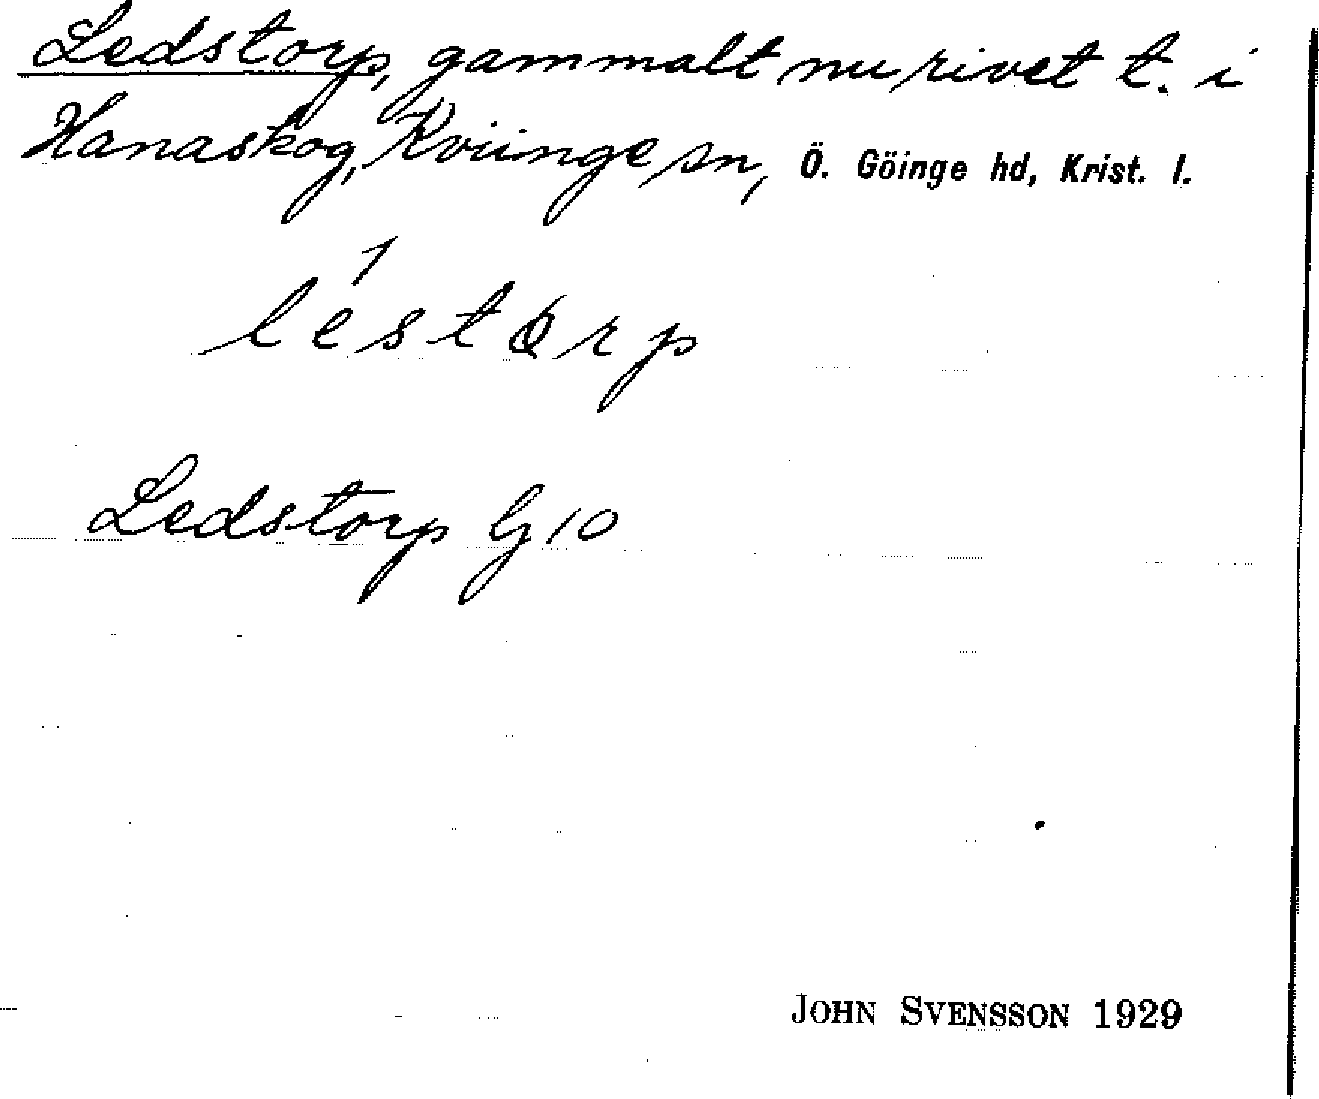 Ledstorp, gammalt nu rivet t. i
Hanaskog, Kviinge sn, Ö. Göinge hd, Krist. l.
léstorp
Ledstorp G10
JOHN SVENSSON 1929